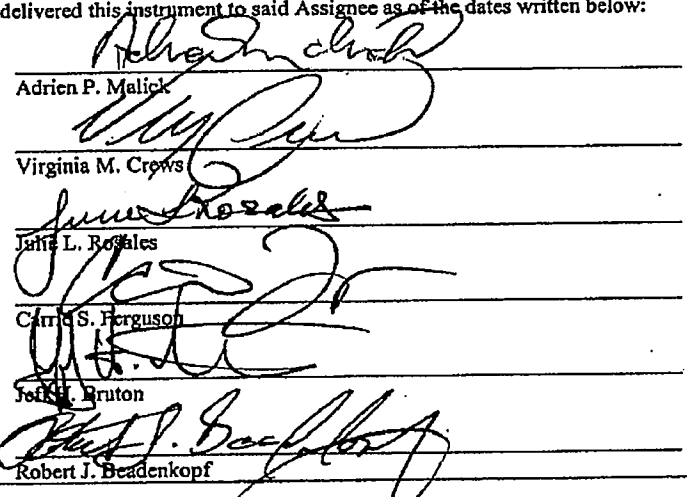 delivered this instrument to said Assignee as of the dates written below:
Adrien P. Malick
Virginia M. Crews
Julie L. Rosales
Julie L. Rosales
Carrie S. Ferguson
Jeff H. Bruton
Robert J. Beadenkopf
Robert J. Beadenkopf